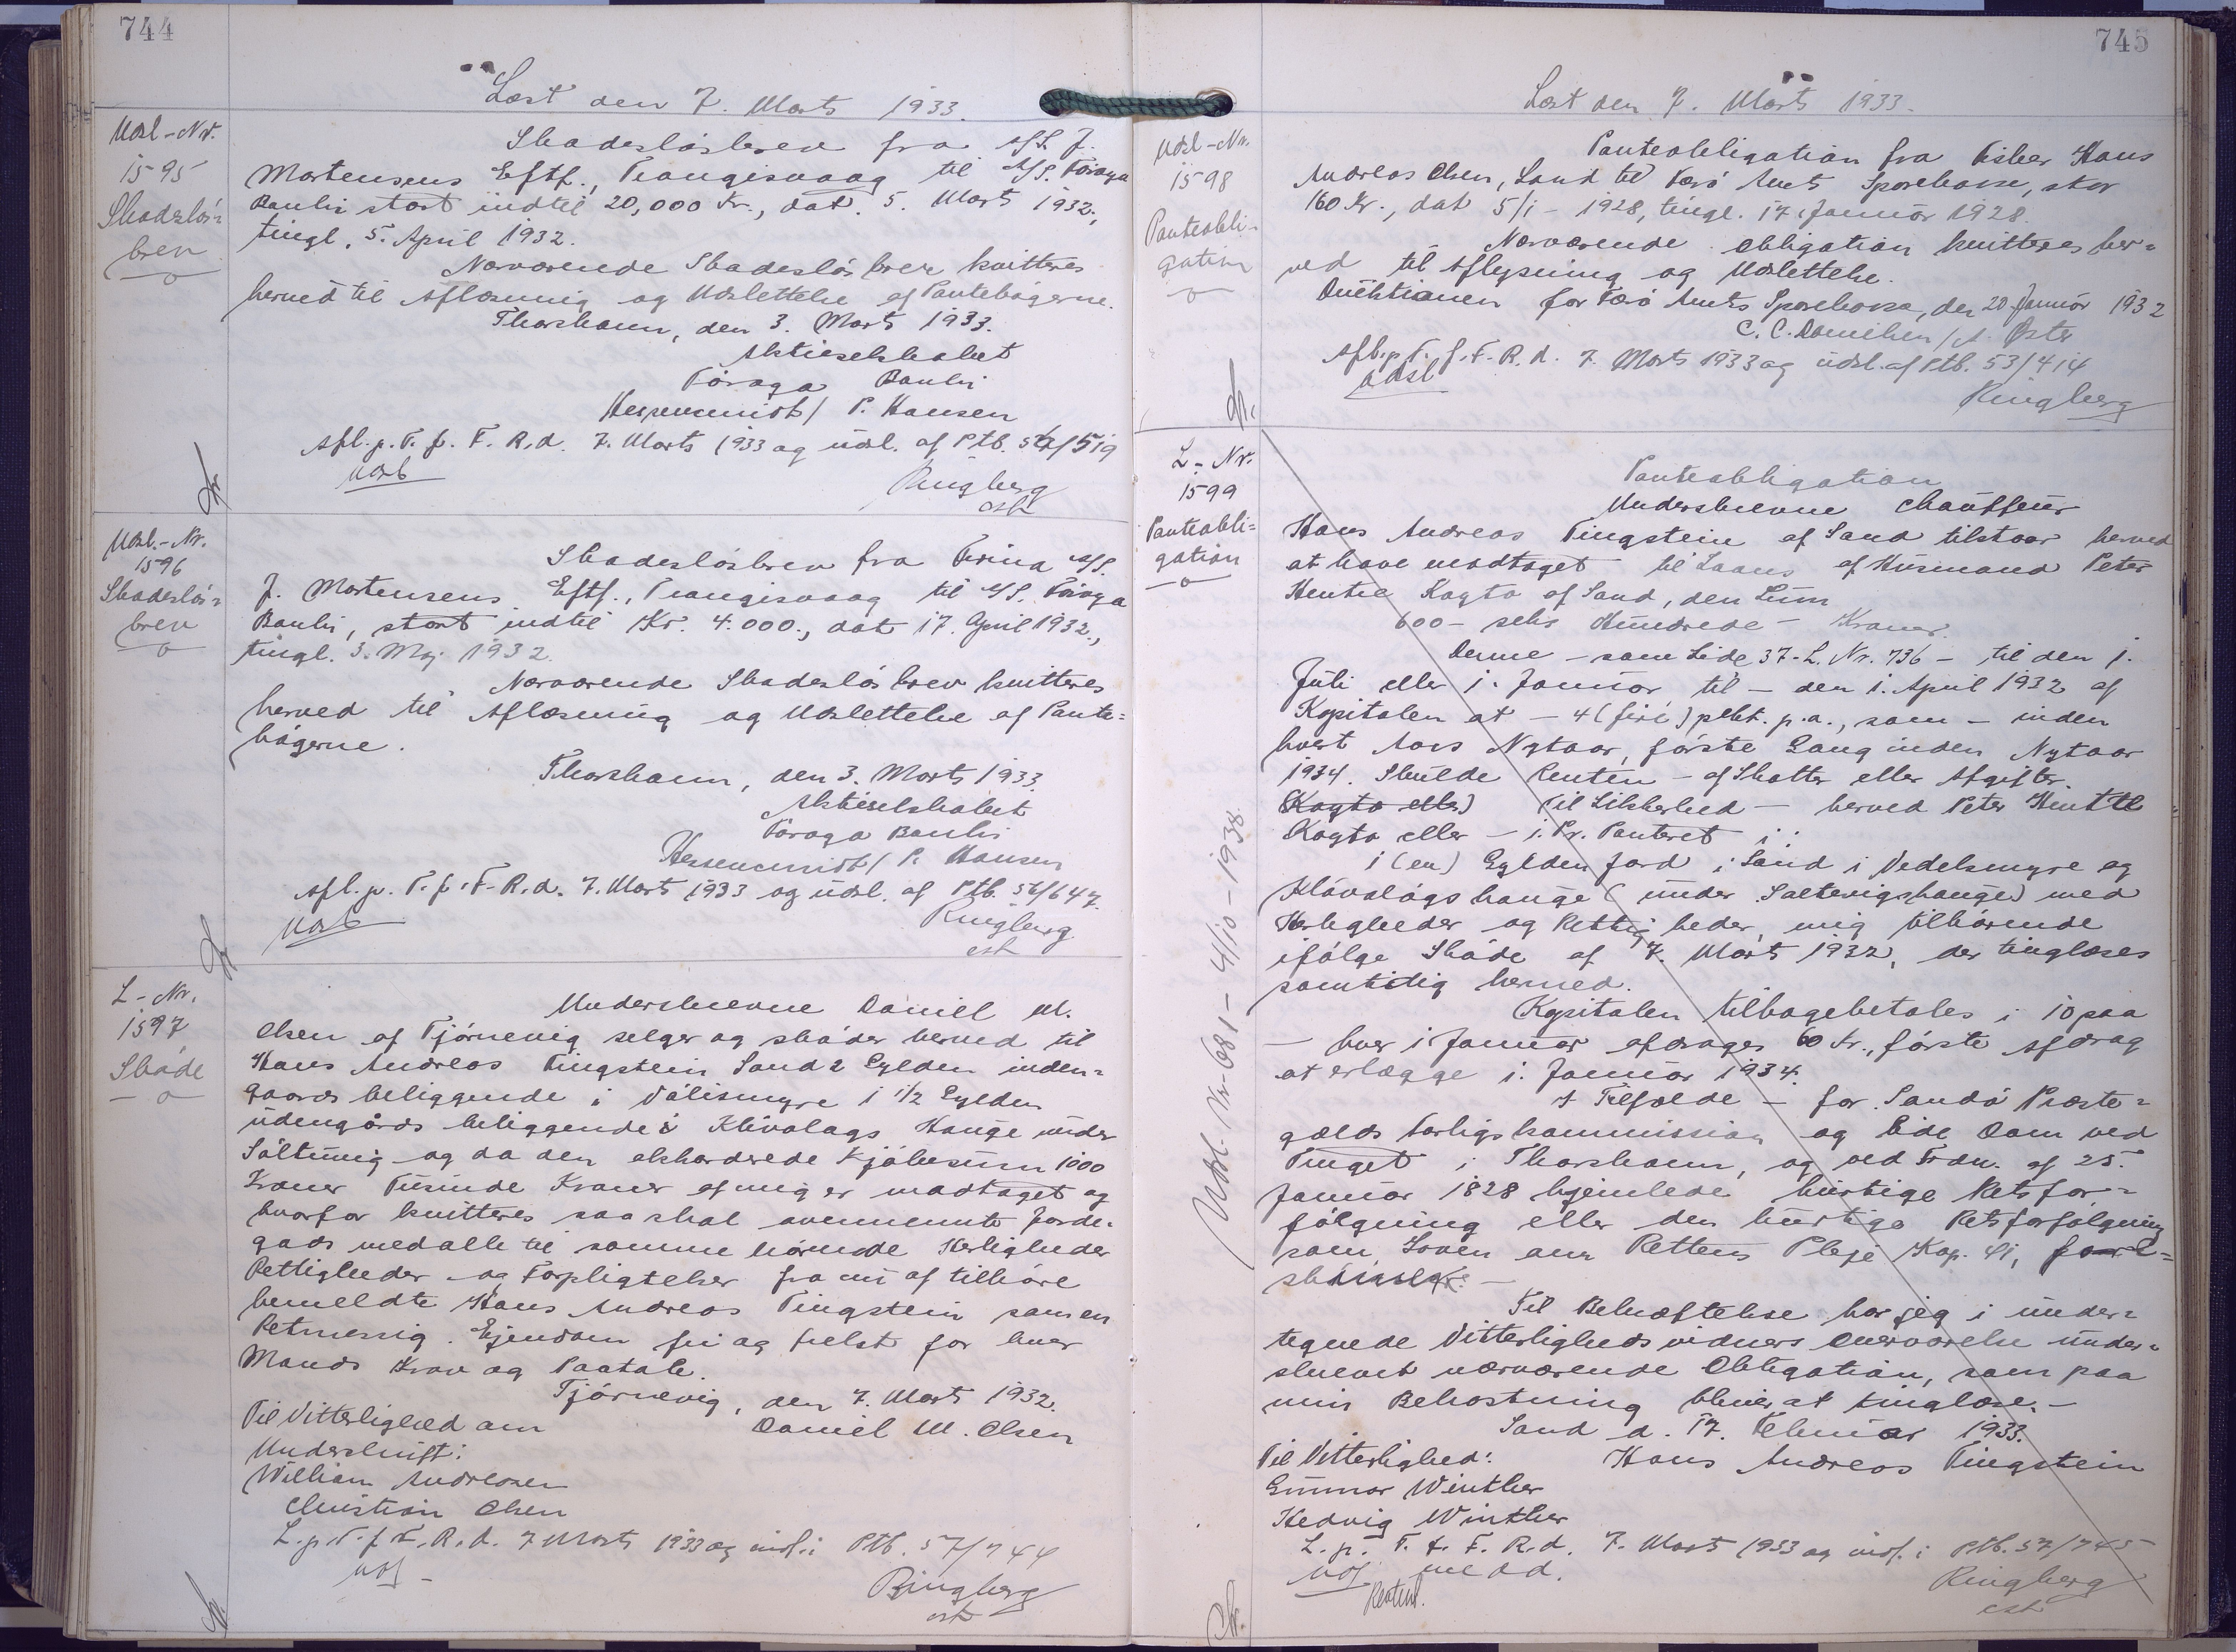 744
Læst den 7. Marts 1933.
Udsl-Nr.
1595
Skadesløs=
brev
Skadesløsbrev fra A/S. J.
Mortensens Eftf., Trangisvaag til A/S. Föroya
Banki stort indtil 20,000 Kr., dat. 5. Marts 1932.,
tingl. 5. April 1932.
Nærværende Skadesløsbrev kvitteres
herved til Aflæsning og Udslettelse af Pantebøgerne.
Thorshavn, den 3. Marts 1933.
Aktieselskabet
Föroya Banki
P. Hansen
Afl. p. T. f. F. R. d. 7. Marts 1933 og udsl. af Ptb. 57/519
Ringberg
cst
Udsl.-Nr.
1596
Skadesløs=
brev
Skadesløsbrev fra Firma A/S.
J. Mortensens Eftf., Trangisvaag til A/S. Föroya
Banki, stort indtil Kr. 4.000., dat 17. April 1932.,
tingl. 3. Maj 1932.
Nærværende Skadesløsbrev kvitteres
herved til Aflæsning og Udslettelse af Pante=
bøgerne.
Thorshavn, den 3. Marts 1933.
Aktieselskabet
Föroya Banki
P. Hansen
Afl. p. T. f. F. R. d. 7. Marts 1933 og udsl. af Ptb. 56/647.
Ringberg
cst
L-Nr.
1597
Skøde
Underskrevne Daniel M.
Olsen af Tjørnevig selger og skøder herved til
Hans Andreas Tingstein Sand 2 Gylden inden=
gaards beliggende iVálismyre 1 1/2 Gylden
udengårds beliggende i Klivalags Hauge under
Søltuvig og da den akkorderede Kjøbesum 1000
Kroner Tusinde Kroner af mig er modtaget og
hvorfor kvitteres saa skal ovennævnte Jorde=
gods med alle til samme hørende Herligheder
Rettigheder og Forpligtelser fra nu af tilhøre
bemeldte Hans Andreas Tingstein som en
Retmessig Ejendom fri og frelst for hver
Mands Krav og Paatale.
Tjørnevig, den 7. Marts 1932.
Til Vitterlighed om
Daniel M. Olsen
Underskrift:
William Andreasen
Christian Olsen
L. p. T. f. F. R. d. 7 Marts 1933 og indf. i Ptb. 57/744
Ringberg
cst
745
Læst den 7. Marts 1933.
Udsl-Nr.
1598
Panteobli-
gation
Panteobligation fra Fisker Hans
Andreas Olsen, Sand til Færø Amts Sparekasse, stor
160 Kr., dat 5/1 - 1928, tingl. 17. Januar 1928.
Nærværende Obligation kvitteres her=
ved til Aflysning og Udslettelse.
Direktionen for Færø Amts Sparekasse, den 20 Januar 1932
C. C. Danielsen /
Afl. p. T. f. F. R. d. 7. Marts 1933 og udsl. af Ptb. 53/414
Ringberg
L-Nr.
1599
Panteobli=
gation
Udsl. Nr 681 - 4/10 - 1938.
Panteobligation
Underskrevne Chauffeur
Hans Andreas Tingstein af Sand tilstaar herved
at have modtaget til Laans af Husmand Peter
Hentze Kagto af Sand, den Sum
600 - seks Hundrede - Kroner.
Denne - som Side 37 - L. Nr. 736 - til den 1.
Juli eller 1. Januar til - den 1. April 1932 af
Kapitalen at - 4 (fire) pCt. p.a., som - inden
hvert Aars Nytaar, første Gang inden Nytaar
1934. Skulde Renten - af Skatter eller Afgifter.
(Kagto eller) Til Sikkerhed - herved Peter Hentze
Kagto eller - 1. Pr. Panteret i:
1 (en) Gylden Jord i Sand i Vedelsmyre og
Klávalágshauge (under Saltevigshauge) med
Herligheder og Rettigheder, mig tilhørende
ifølge Skøde af 7. Marts 1932, der tinglæses
samtidig hermed.
Kapitalen tilbagebetales i 10 paa
- hver 1 Januar afdrages 60 Kr., første Afdrag
at erlægge 1. Januar 1934.
I Tilfælde - for Sandø Præste=
gælds Forligskommission og lide Dom ved
Tinget i Thorshavn, og ved Frdn. af 25.
Januar 1828 hjemlede hurtige Retsfor=
følgning eller den hurtige Retsforfølgning
som Loven om Rettens Pleje Kap. 41,
Til Bekræftelse har jeg i under=
tegnede Vitterlighedsvidners Overværelse under=
skrevet nærværende Obligation, som paa
min Bekostning bliver at tinglæse.-
Sand d. 17. Februar 1933.
Til Vitterlighed:
Hans Andreas Tingstein
Gunnar Winther
Hedvig Winther
L. p. T. f. F. R. d. 7. Marts 1933 og indf. i Ptb. 57/745
Ringberg
cst